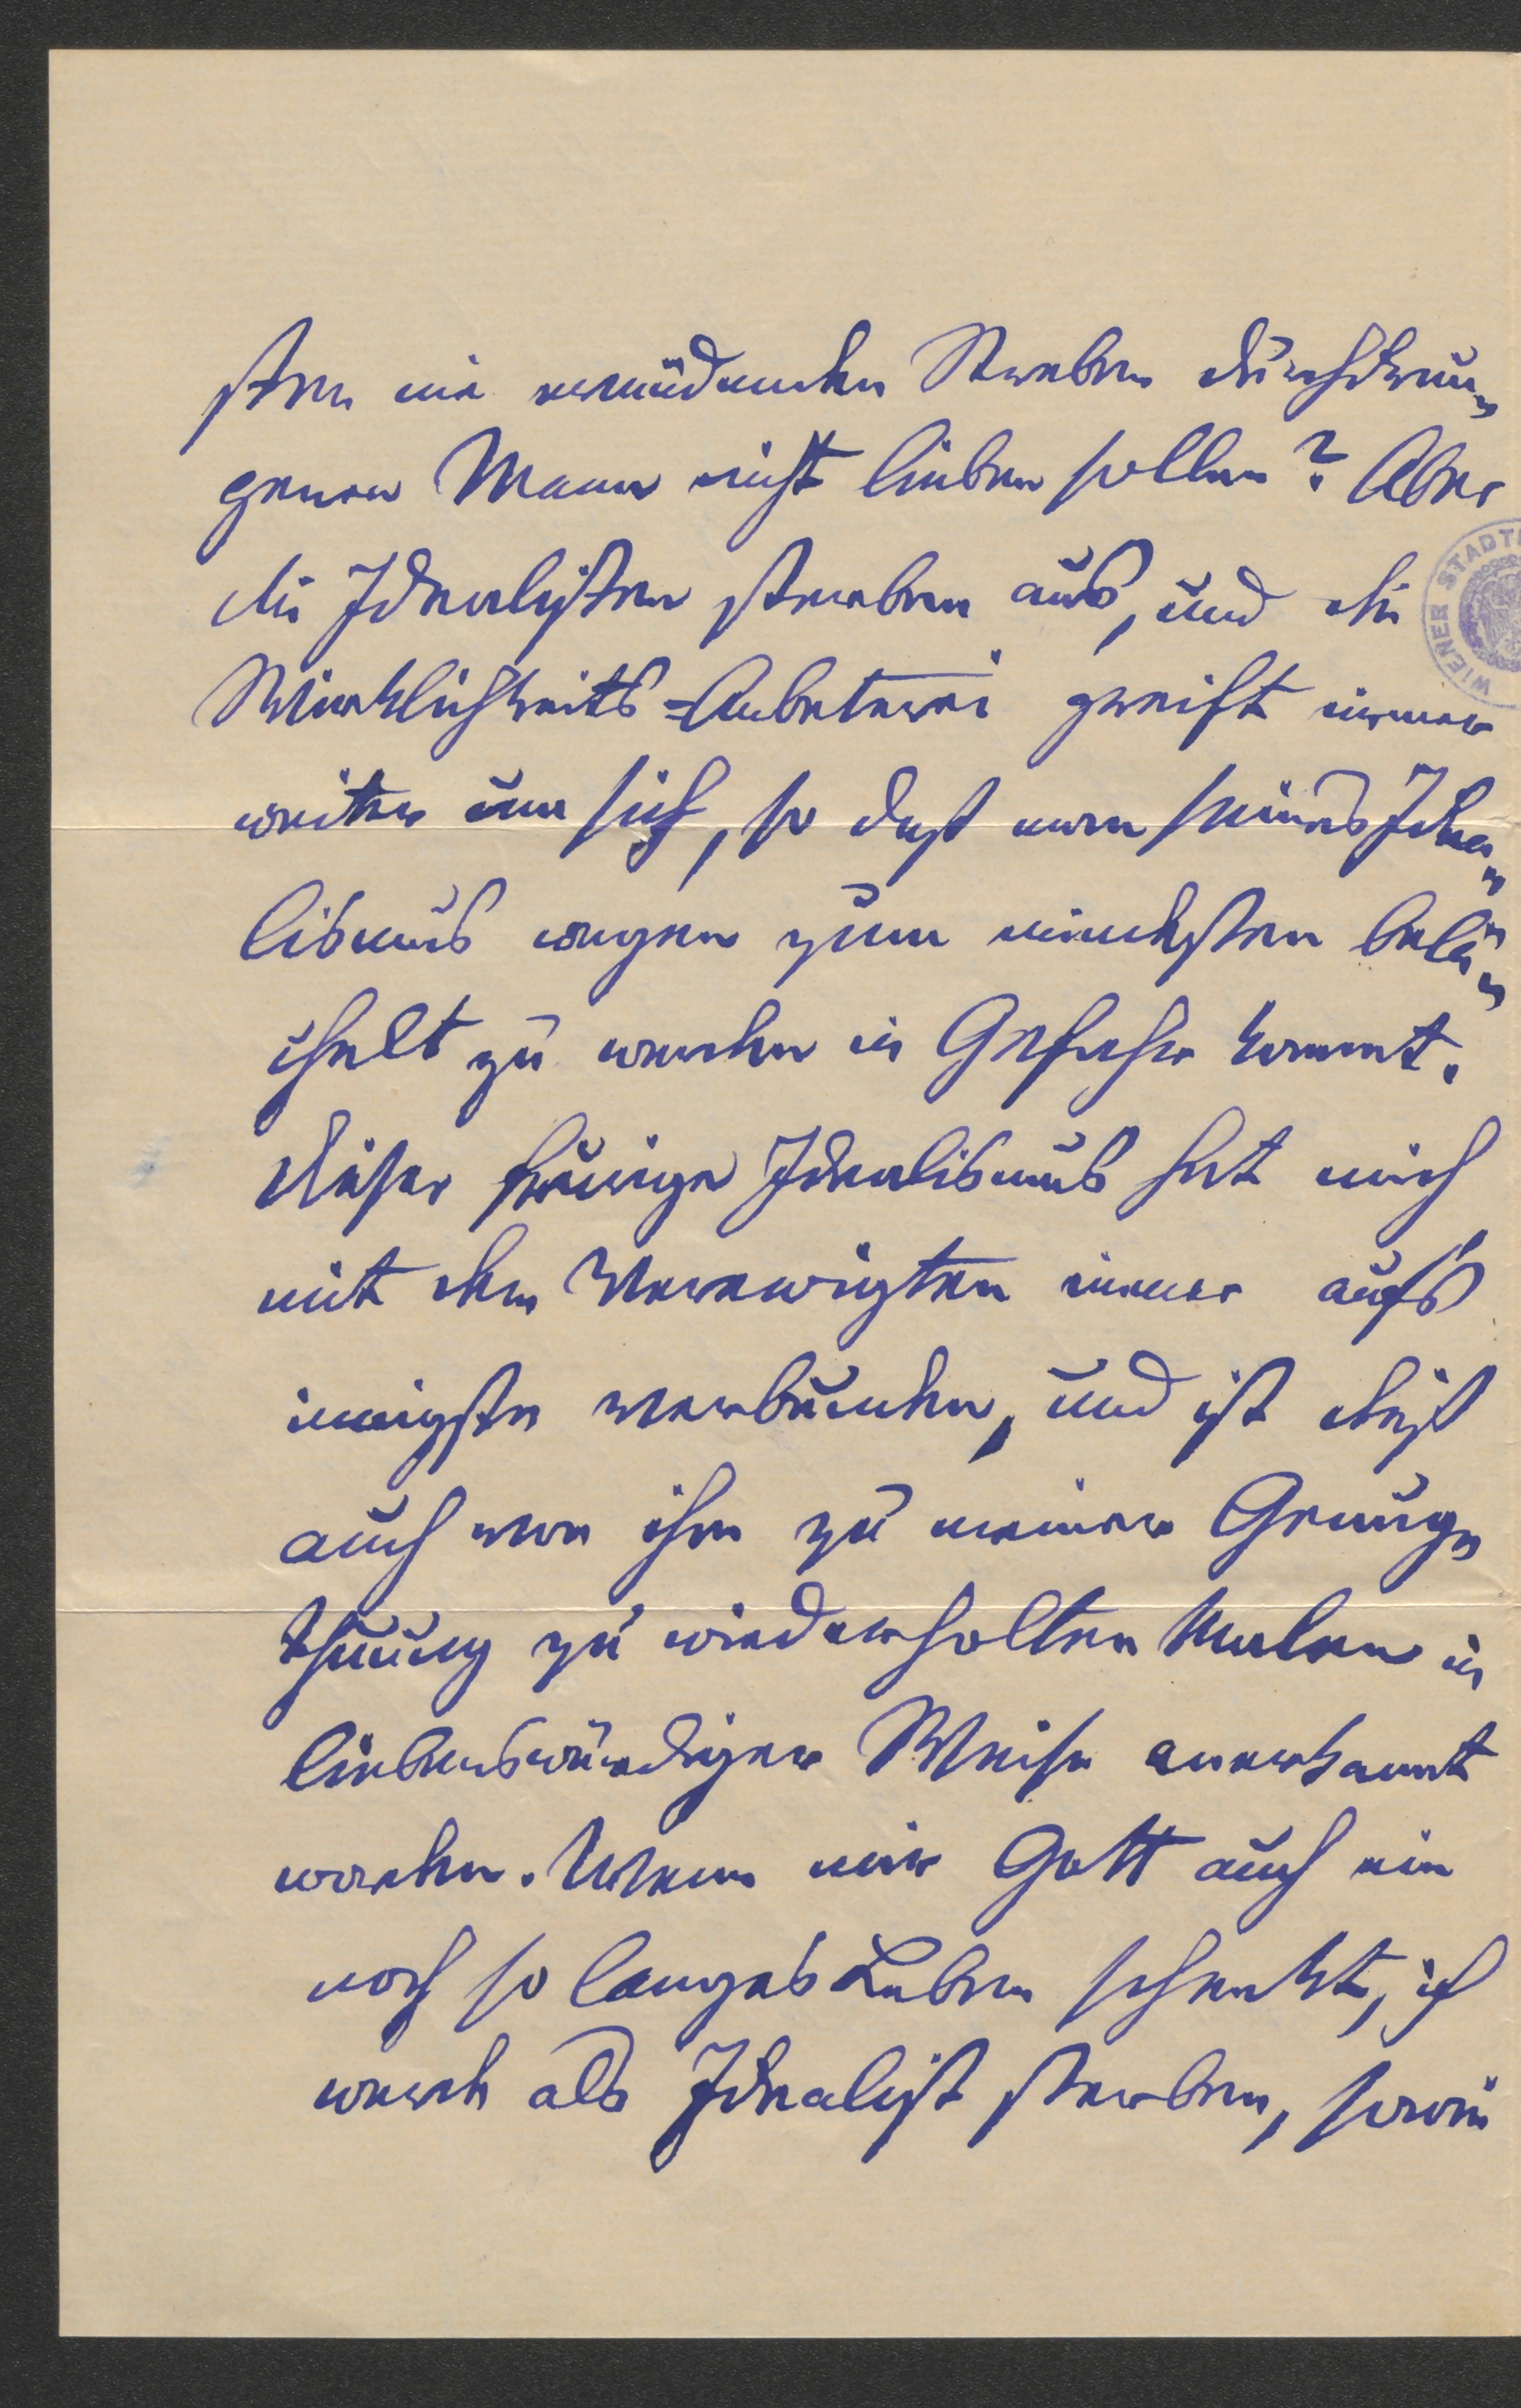 sten nie ermüdenden Streben durchdrun-
genen Mann nicht lieben sollen? Aber
die Idealisten sterben aus, und die
Wirklichkeits-Anbeterei greift immer
weiter um sich, so daß man seines Idea-
lismus wegen zum mindesten belä-
chelt zu werden in Gefahr kommt.
Dieser feurige Idealismus hat mich
mit dem Verewigten immer aufs
innigste verbunden, und ist dieß
auch von ihm zu meiner Genug-
thuung zu wiederholten Malen in
liebenswürdiger Weise anerkannt
worden. Wenn mir Gott auch ein
noch so langes Leben schenkt, ich
werde als Idealist sterben, sowie
WIENER STADT